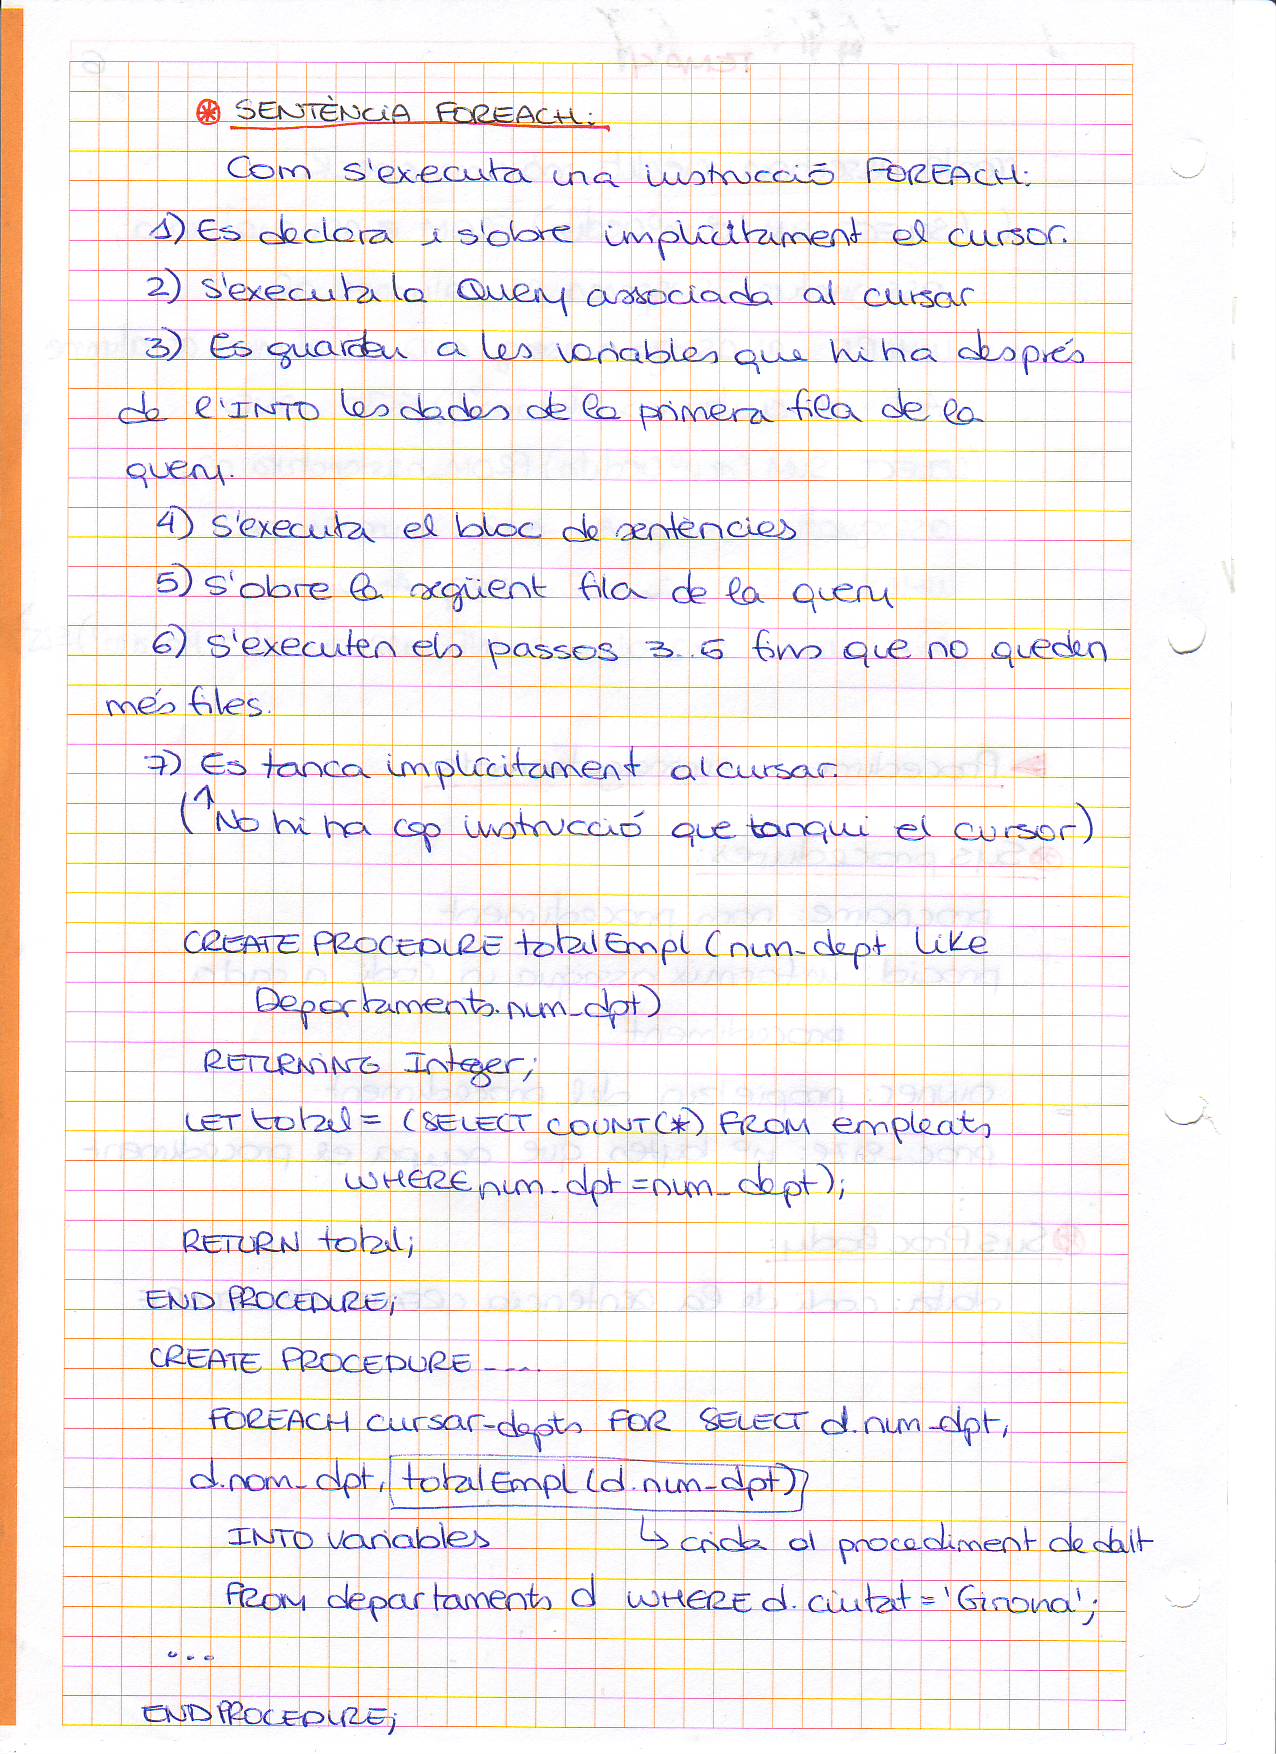 ⊛ SENTÈNCIA FOREACH:
Com s'executa una instrucció FOREACH:
1) Es declara i s'obre implícitament el cursor.
2) S'executa la Query associada al cursar
3) Es guarden a les variables que hi ha després
de l'INTO les dades de la primera fila de la
query.
4) S'executa el bloc de sentències
5) S'obre la següent fila de la query
6) S'executen els passos 3..5 fins que no queden
més files.
7) Es tanca implícitament al cursar.
(↑No hi ha cap instrucció que tanqui el cursor)
CREATE PROCEDURE totalEmpl (num_dept like
Departaments.num_dpt)
RETURNING Integer;
LET total = (SELECT COUNT(*) FROM empleats
WHERE num_dpt = num_dept);
RETURN total;
END PROCEDURE;
CREATE PROCEDURE ....
FOREACH cursar-depts FOR SELECT d.num_dpt,
d.nom_dpt, totalEmpl (d.num_dpt)
INTO variables ↳ crida al procediment de dalt
FROM departaments d WHERE d.ciutat = 'Girona';
...
END PROCEDURE;